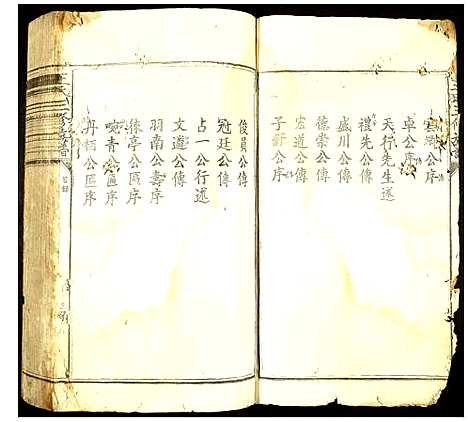 公序
卓公序
天行先生述
禮先公傳
盛川公傳
德崇公傳
宏道公傳
子軒公序
俊員公傳
冠廷公傳
占一公行述
文遵公傳
羽南公壽序
徠亭公匾序
畹青公匾序
丹栢公匾序